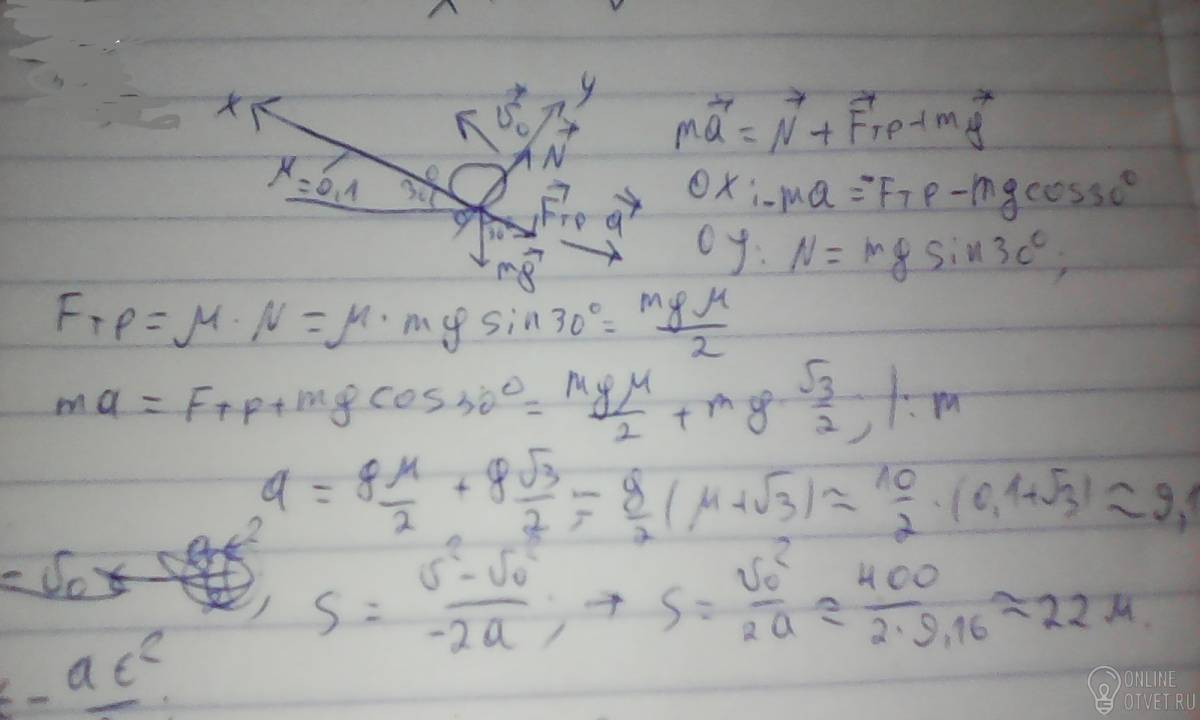 X
y
v⃗₀
N⃗
μ=0,1
30°
F⃗тр
a⃗
30
mg⃗
ma⃗ = N⃗ + F⃗тр + mg⃗
OX: -ma = -Fтр - mgcos30°
Oy: N = mg sin30°;
Fтр = μ·N = μ·mg sin30° = mgμ/2
ma = Fтр + mg cos30° = mgμ/2 + mg·√3/2; |: m
a = gμ/2 + g√3/2 = g/2 (μ+√3) ≈ 10/2·(0,1+√3) ≈ 9,1
= v₀
S = v²-v₀²/-2a; → S = v₀²/2a ≈ 400/2·9,16 ≈ 22 м.
- at²/
ONLINE
OTVET.RU